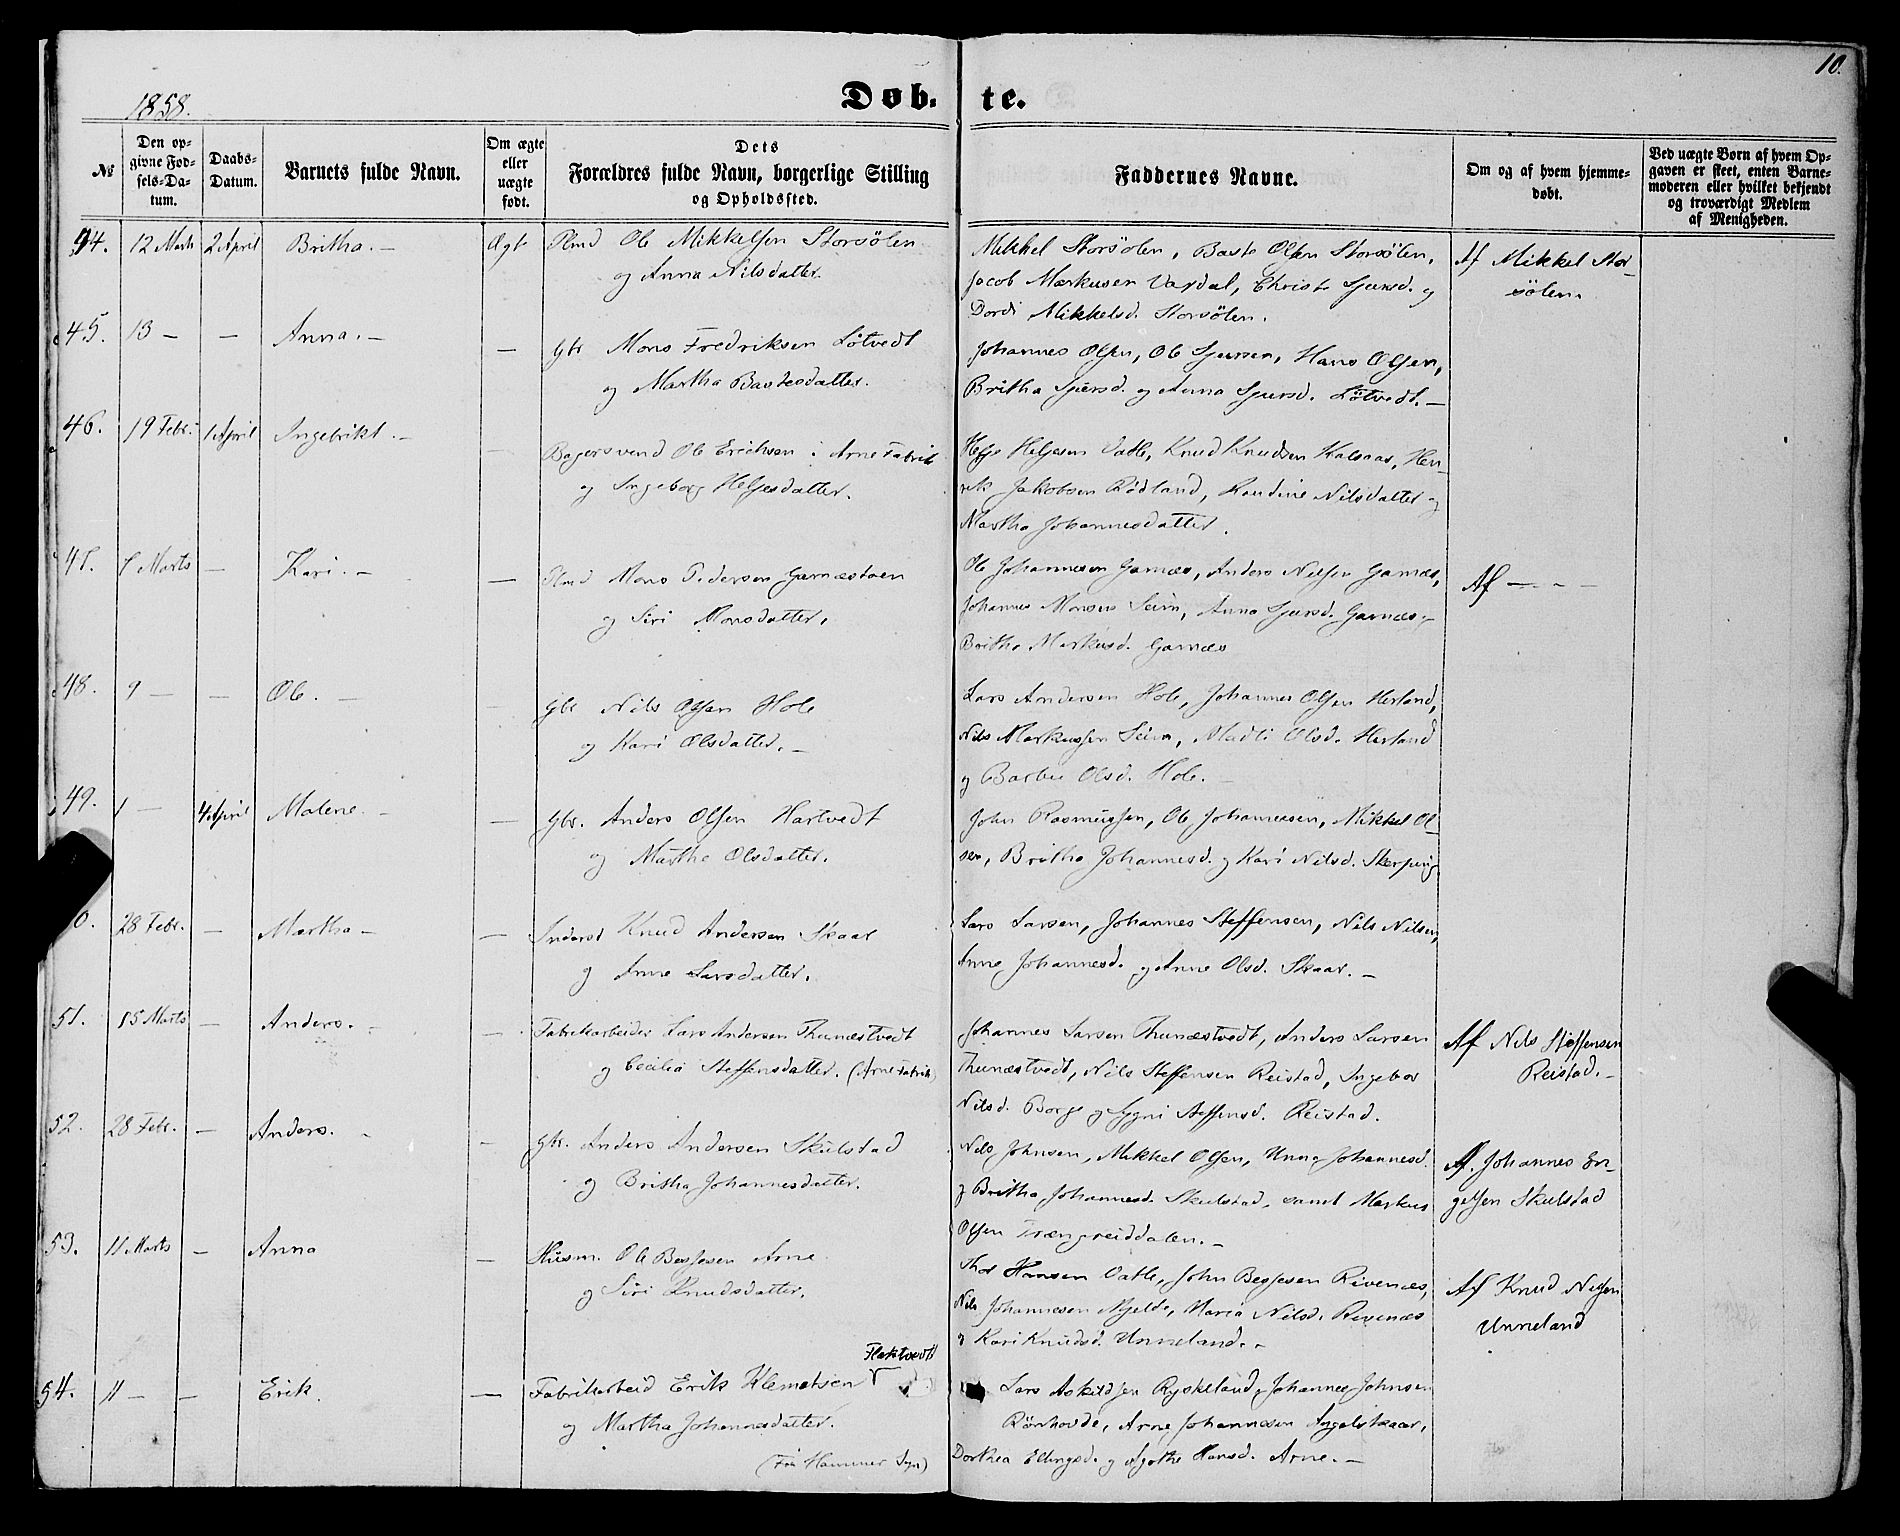 10.
1858.
Døb- te.
№
Den op-
givne Fød-
sels-Da-
tum.
Daabs-
Datum.
Barnets fulde Navn.
Om ægte
eller
uægte
født.
Dets
Forældres fulde Navn, borgerlige Stilling
og Opholdssted.
Faddernes Navne.
Om og af hvem hjemme-
døbt.
Ved uægte Børn af hvem Op-
gaven er skeet, enten Barne-
moderen eller hvilket bekjendt
og troværdigt Medlem
af Menigheden.
44. 12 Marts 2 April Britha. — Ægte Plmd Ole Mikkelsen Storsølen
og Anna Nilsdatter.
Mikkel Storsølen, Baste Olsen Storsølen,
Jacob Markusen Vardal, Christi Sjursd. og
Dordi Mikkelsd. Storsølen.
Af Mikkel Stor-
sølen.
45. 13 — — Anna. — — Gbr Mons Fredriksen Løtvedt
og Martha Bastesdatter.
Johannes Olsen, Ole Sjursen, Hans Olsen,
Britha Sjursd. og Anna Sjursd. Løtvedt. —
46. 19 Febr. 1 April Ingebrikt. — — Bagersvend Ole Erichsen i Arne Fabrik
og Ingeborg Heljesdatter.
Helje Heljesen Vatle, Knud Knudsen Kalsaas, Hen-
rik Jakobsen Rødland, Randine Nilsdatter og
Martha Johannesdatter.
47. 7 Marts — Kari. — — Plmd Mons Pedersen Garnæstøen
og Siri Monsdatter.
Ole Johannesen Garnæs, Anders Nilsen Garnæs,
Johannes Monsen Seim, Anna Sjursd. Garnæs og
Britha Markusd. Garnæs
Af — — —
48. 9 — — Ole. — — Gbr Nils Olsen Hole
og Kari Olsdatter. —
Lars Andersen Hole, Johannes Olsen Herland,
Nils Markussen Seim, Madli Olsd. Herland
og Barbru Olsd. Hole. —
49. 1 — 4 April Malene. — — Gbr. Anders Olsen Hartvedt
og Martha Olsdatter.
John Rasmussen, Ole Johannesen, Mikkel Ol-
sen, Britha Johannesd. og Kari Nilsd. Skerping
0. 28 Febr. — Martha — — Inderst Knud Andersen Skaar
og Anne Larsdatter.
Lars Larsen, Johannes Steffensen, Nils Nilsen,
Anne Johannesd. og Anne Olsd. Skaar. —
51. 15 Marts — Anders. — — Fabrikarbeider Lars Andersen Thunæstvedt
og Cecilia Steffensdatter. (Arne Fabrik)
Johannes Larsen Thunæstvedt, Anders Larsen
Thunæstvedt, Nils Steffensen Reistad, Ingebor
Nilsd. Borge og Sygni Steffensd. Reistad.
Af Nils Steffensen
Reistad. —
52. 28 Febr. — Anders. — — Gbr. Anders Andersen Skulstad
og Britha Johannesdatter.
Nils Johnsen, Mikkel Olsen, Unna Johannesd.
og Britha Johannesd. Skulstad, samt Markus
Olsen Trængreiddalen. —
Af. Johannes En-
gelsen Skulstad
53. 11 Marts — Anna — Husm. Ole Besjesen Arne
og Siri Knudsdatter.
Thor Hansen Vatle, John Besjesen Rivenæs,
Nils Johannesen Mjelde, Maria Nilsd. Rivenæs
og Kari Knudsd. Unneland. —
Af Knud Nilsen
Unneland
54. 11 — — Erik. — Fabrikarbeid Erik Klemetsen Flaktvedt
og Martha Johannesdatter.
(Fra Hammer Sgn)
Lars Askildsen Ryskeland, Johannes Johnsen
Rønhovde, Arne Johannesen Angelskaar,
Dorthea Ellingsd. og Agathe Hansd. Arne. —